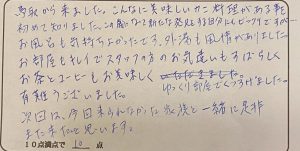 鳥取から来ました。こんなに美味しいカニ料理がある事を
初めて知りました。この歳で新たな発見する自分にもビックリですが
お風呂も気持ちよかったです。外湯も風情がありました。
お部屋もキレイでスタッフの方のお気遣いもすばらしく
お茶とコーヒーもお美味しく
ゆっくり部屋でくつろげました。
有難うございました。
次回は、今回来られなかった家族と一緒に是非
また来たいと思います。
10点満点で 10 点